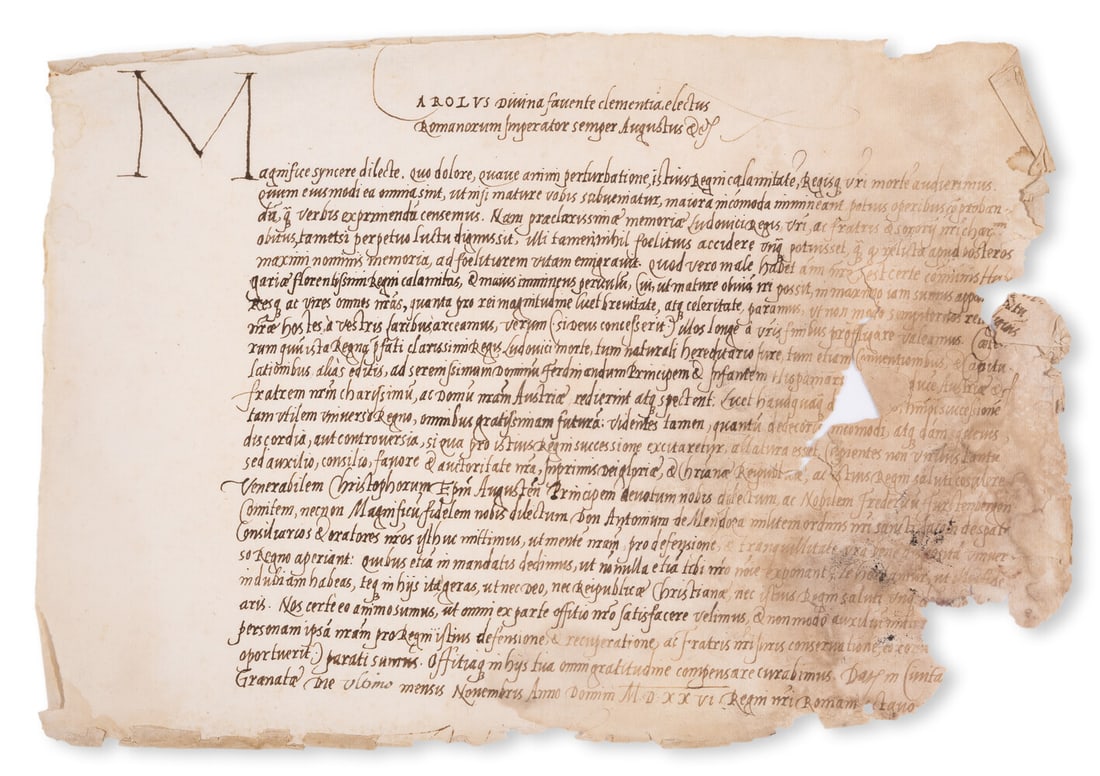 AROLVS Divina favente clementia, electus
Romanorum Imperator semper Augustus &c
Magnifice syncere dilecte. quo dolore, quave animi perturbatione, istius Regni calamitate, Regisq vri morte audierimus.
quum eiusmodi ea omnia sint, ut nisi mature vobis subveniatur, maiora incomoda immineant potius operibus cōproban-
da, q̄ verbis exprimenda censemus. Nam praeclarissimæ memoriæ Ludovici Regis vri, ac fratris & sororij nri char
obitus, tametsi perpetuo luctu dignus sit, illi tamen nihil foelitius accidere unq potuisset, q̄ q relicta apud posteros
maximi nominis memoria, ad foelitiorem vitam emigravit. Quod vero male habet aīm nrm est certe cōmunis Hu
gariæ florentissimi Regni calamitas, & maius imminens periculū, Cui, ut mature obviā iri possit, in maximo iam sumus appa
Resq ac vires omnes nrās, quanta pro rei magnitudine licet brevitate, atq celeritate, paramus, ut non modo
nræ hostes, a vestris laribus arceamus, verum (si deus concesserit) illos longe a vris finibus profligare valeamus. Cæte
rum quū ista Regna pfati clarissimi Regis Ludovici morte, tum naturali hereditario iure, tum etiam conventionibus, & capitu
lationibus alias editis, ad serenissimum Dominū Ferdinandum Principem & Infantem Hispaniarū Austriæ &c
fratrem nrm charissimū, ac Domū nrām Austriæ redierint atq spectent: Licet haudquaq successione
tam utilem universo Regno, omnibus gratissimam futurā: videntes tamen, quantū dedecoris atq damni
discordia, aut controversia, si qua pro istius Regni successione excitaretur, allatura esset, Cupientes non viribus tantū
sed auxilio, consilio, favore & auctoritate nra, Inprimis dei gloriæ, & Chrianæ Reipublicæ, ac istius Regni saluti cōsulere
Venerabilem Christophorum Epm Augusteñ Principem devotum nobis dilectum, ac Nobilem Fredericū
Comitem, necnon Magnificū fidelem nobis dilectum Don Antonium de Mendoça militem ordinis nri sancti Jacobi de spat
Consiliarios & oratores nros isthuc mittimus, ut mentē nram, pro defensione, & tranquillitate univer
so Regno aperiant: quibus etiā in mandatis dedimus, ut nōnulla etiā tibi nro noīe exponant; Te hortamur, ut
indubiam habeas, teq in hijs ita geras, ut nec deo, nec Reipublicæ Christianæ, nec istius Regni saluti unq
aris. Nos certe eo animo sumus, ut omni ex parte offitio nro satisfacere velimus, & non modo auxilia
personam ipsā nrām pro Regni istius defensione, & recuperatione, ac fratris nri juris conservatione,
oportuerit) parati sumus. Offitiaq in hijs tua omni gratitudine compensare curabimus. Dat in Civita
Granatæ Die Ultimo mensis Novembris Anno Domini M D XX VI Regni nri Romani octavo